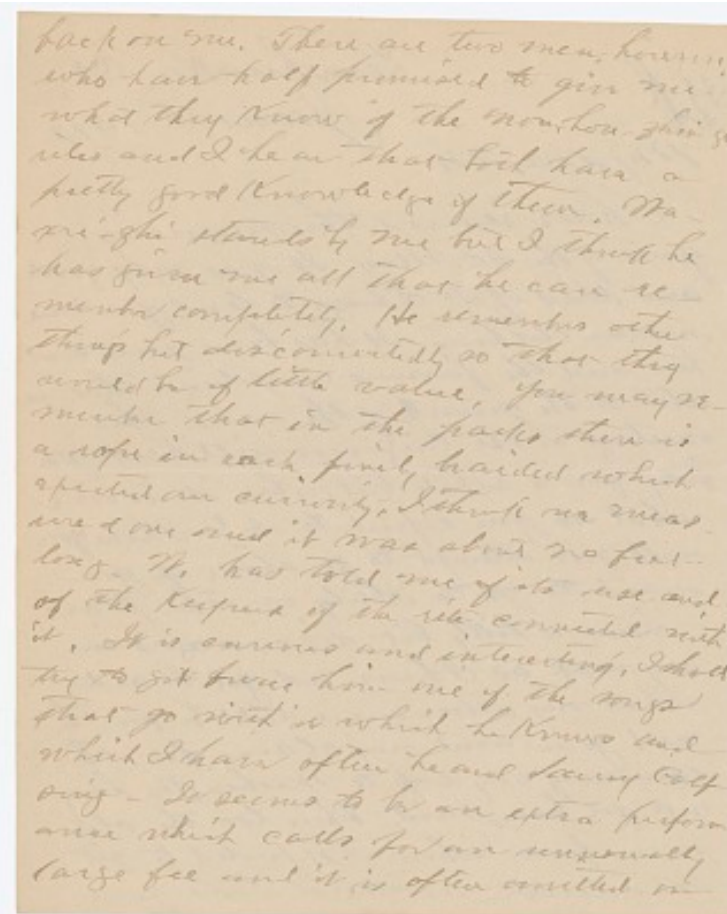 back on me. There are two men, however
who have half promised to give me
what they know of the
rites and I hear that both have a
pretty good knowledge of them. Wa-
xri-zhi stands by me but I think he
has given me all that he can re-
member completely. He remembers other
things but disconnectedly so that they
would be of little value. You may re-
member that in the packs there is
a rope in each, finely braided which
excited our curiosity. I think we meas-
ured one and it was about 20 feet
long. W. has told me of its use and
of the Keepers of the rite connected with
it. It is curious and interesting. I shall
try to get from him one of the songs
that go with it which he knows and
which I have often heard Saucy Calf
sing - It seems to be an extra perform-
ance which calls for an unusually
large fee and it is often omitted on